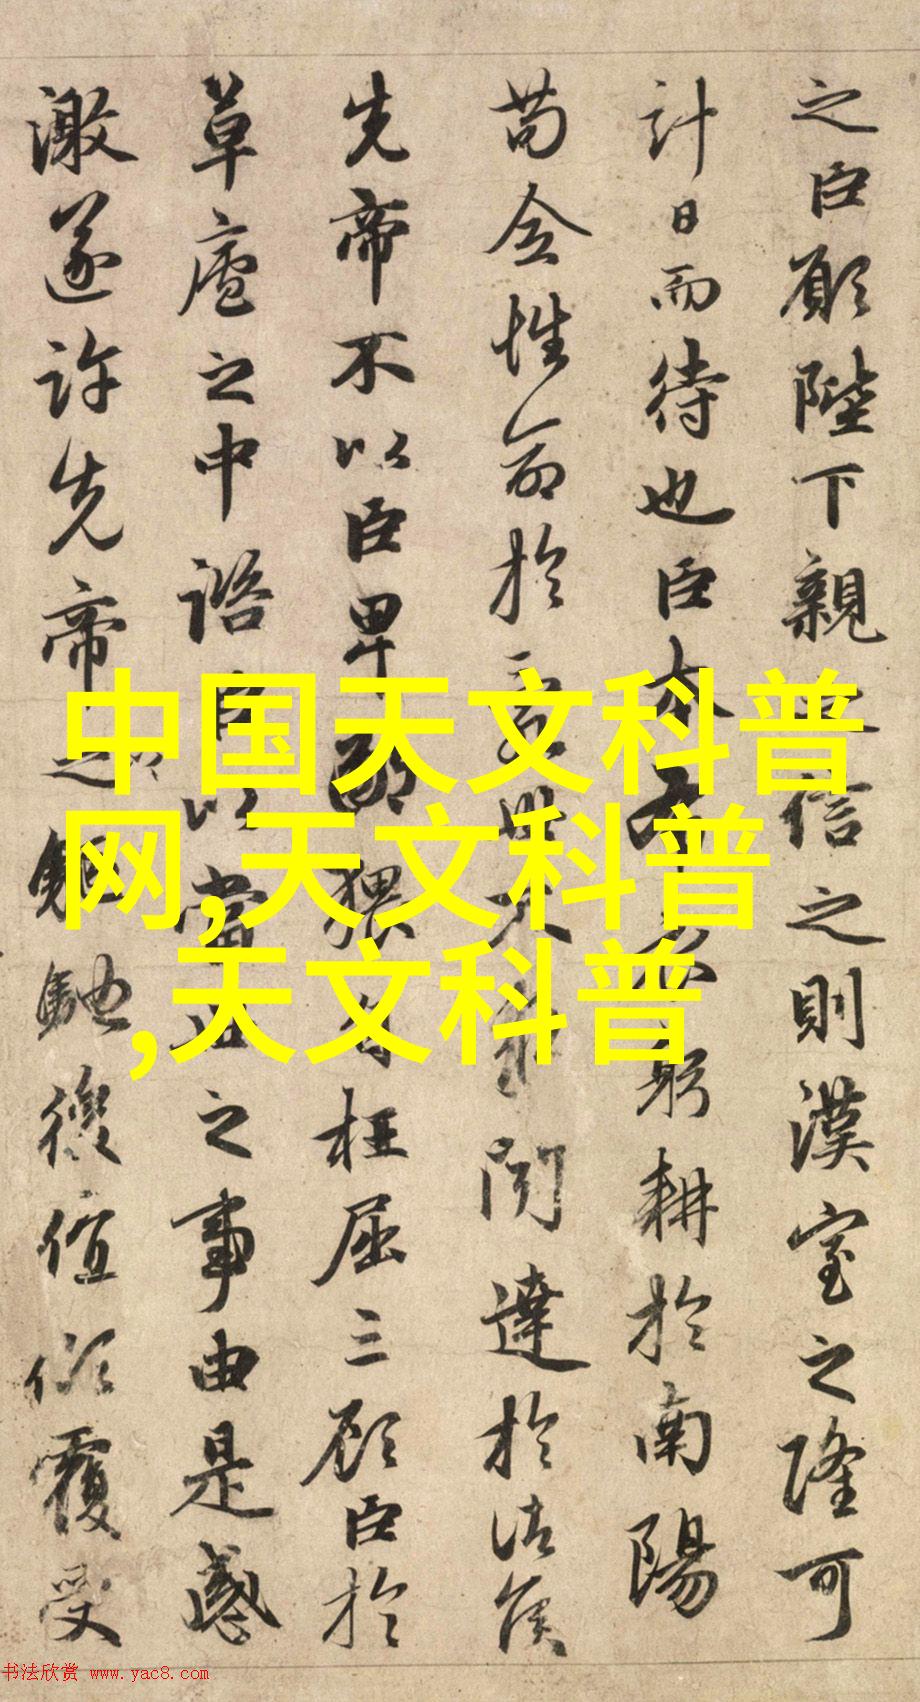 之臣願陛下親之信之則漢室之隆可
計日而待也臣本布衣躬耕於南陽
苟全性命於亂世不求聞達於諸侯
先帝不以臣卑鄙猥自枉屈三顧臣於
草廬之中諮臣以當世之事由是感
激遂許先帝之以驅馳後值傾覆受
中国天文科普
网,天文科普
,天文科普
书法欣赏 www.yac8.com